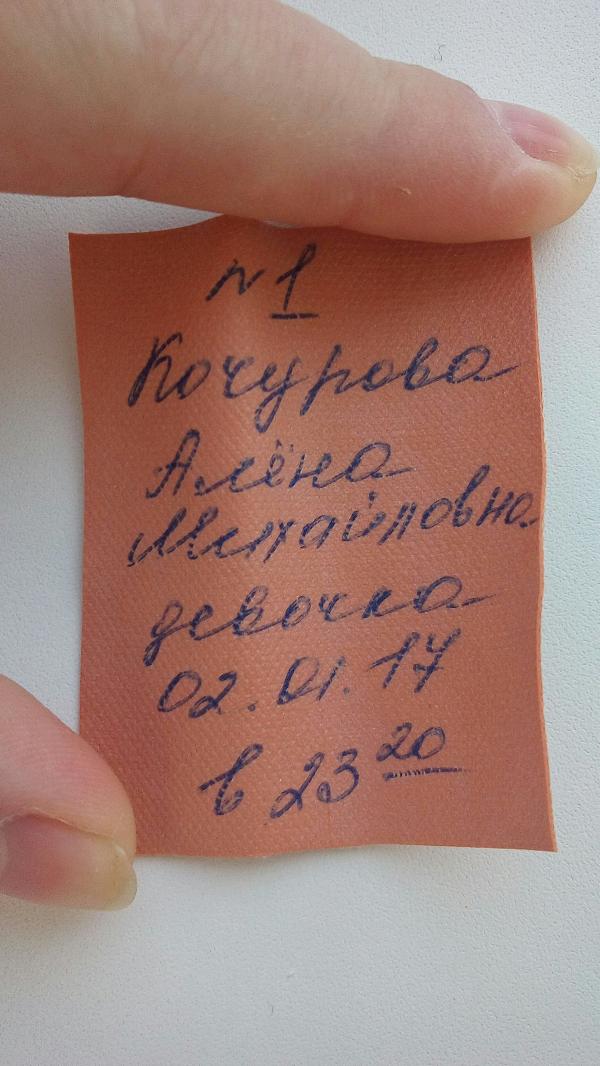 №1
Кочурова
Алёна
Михайловна
девочка
02.01.17
в 23 20